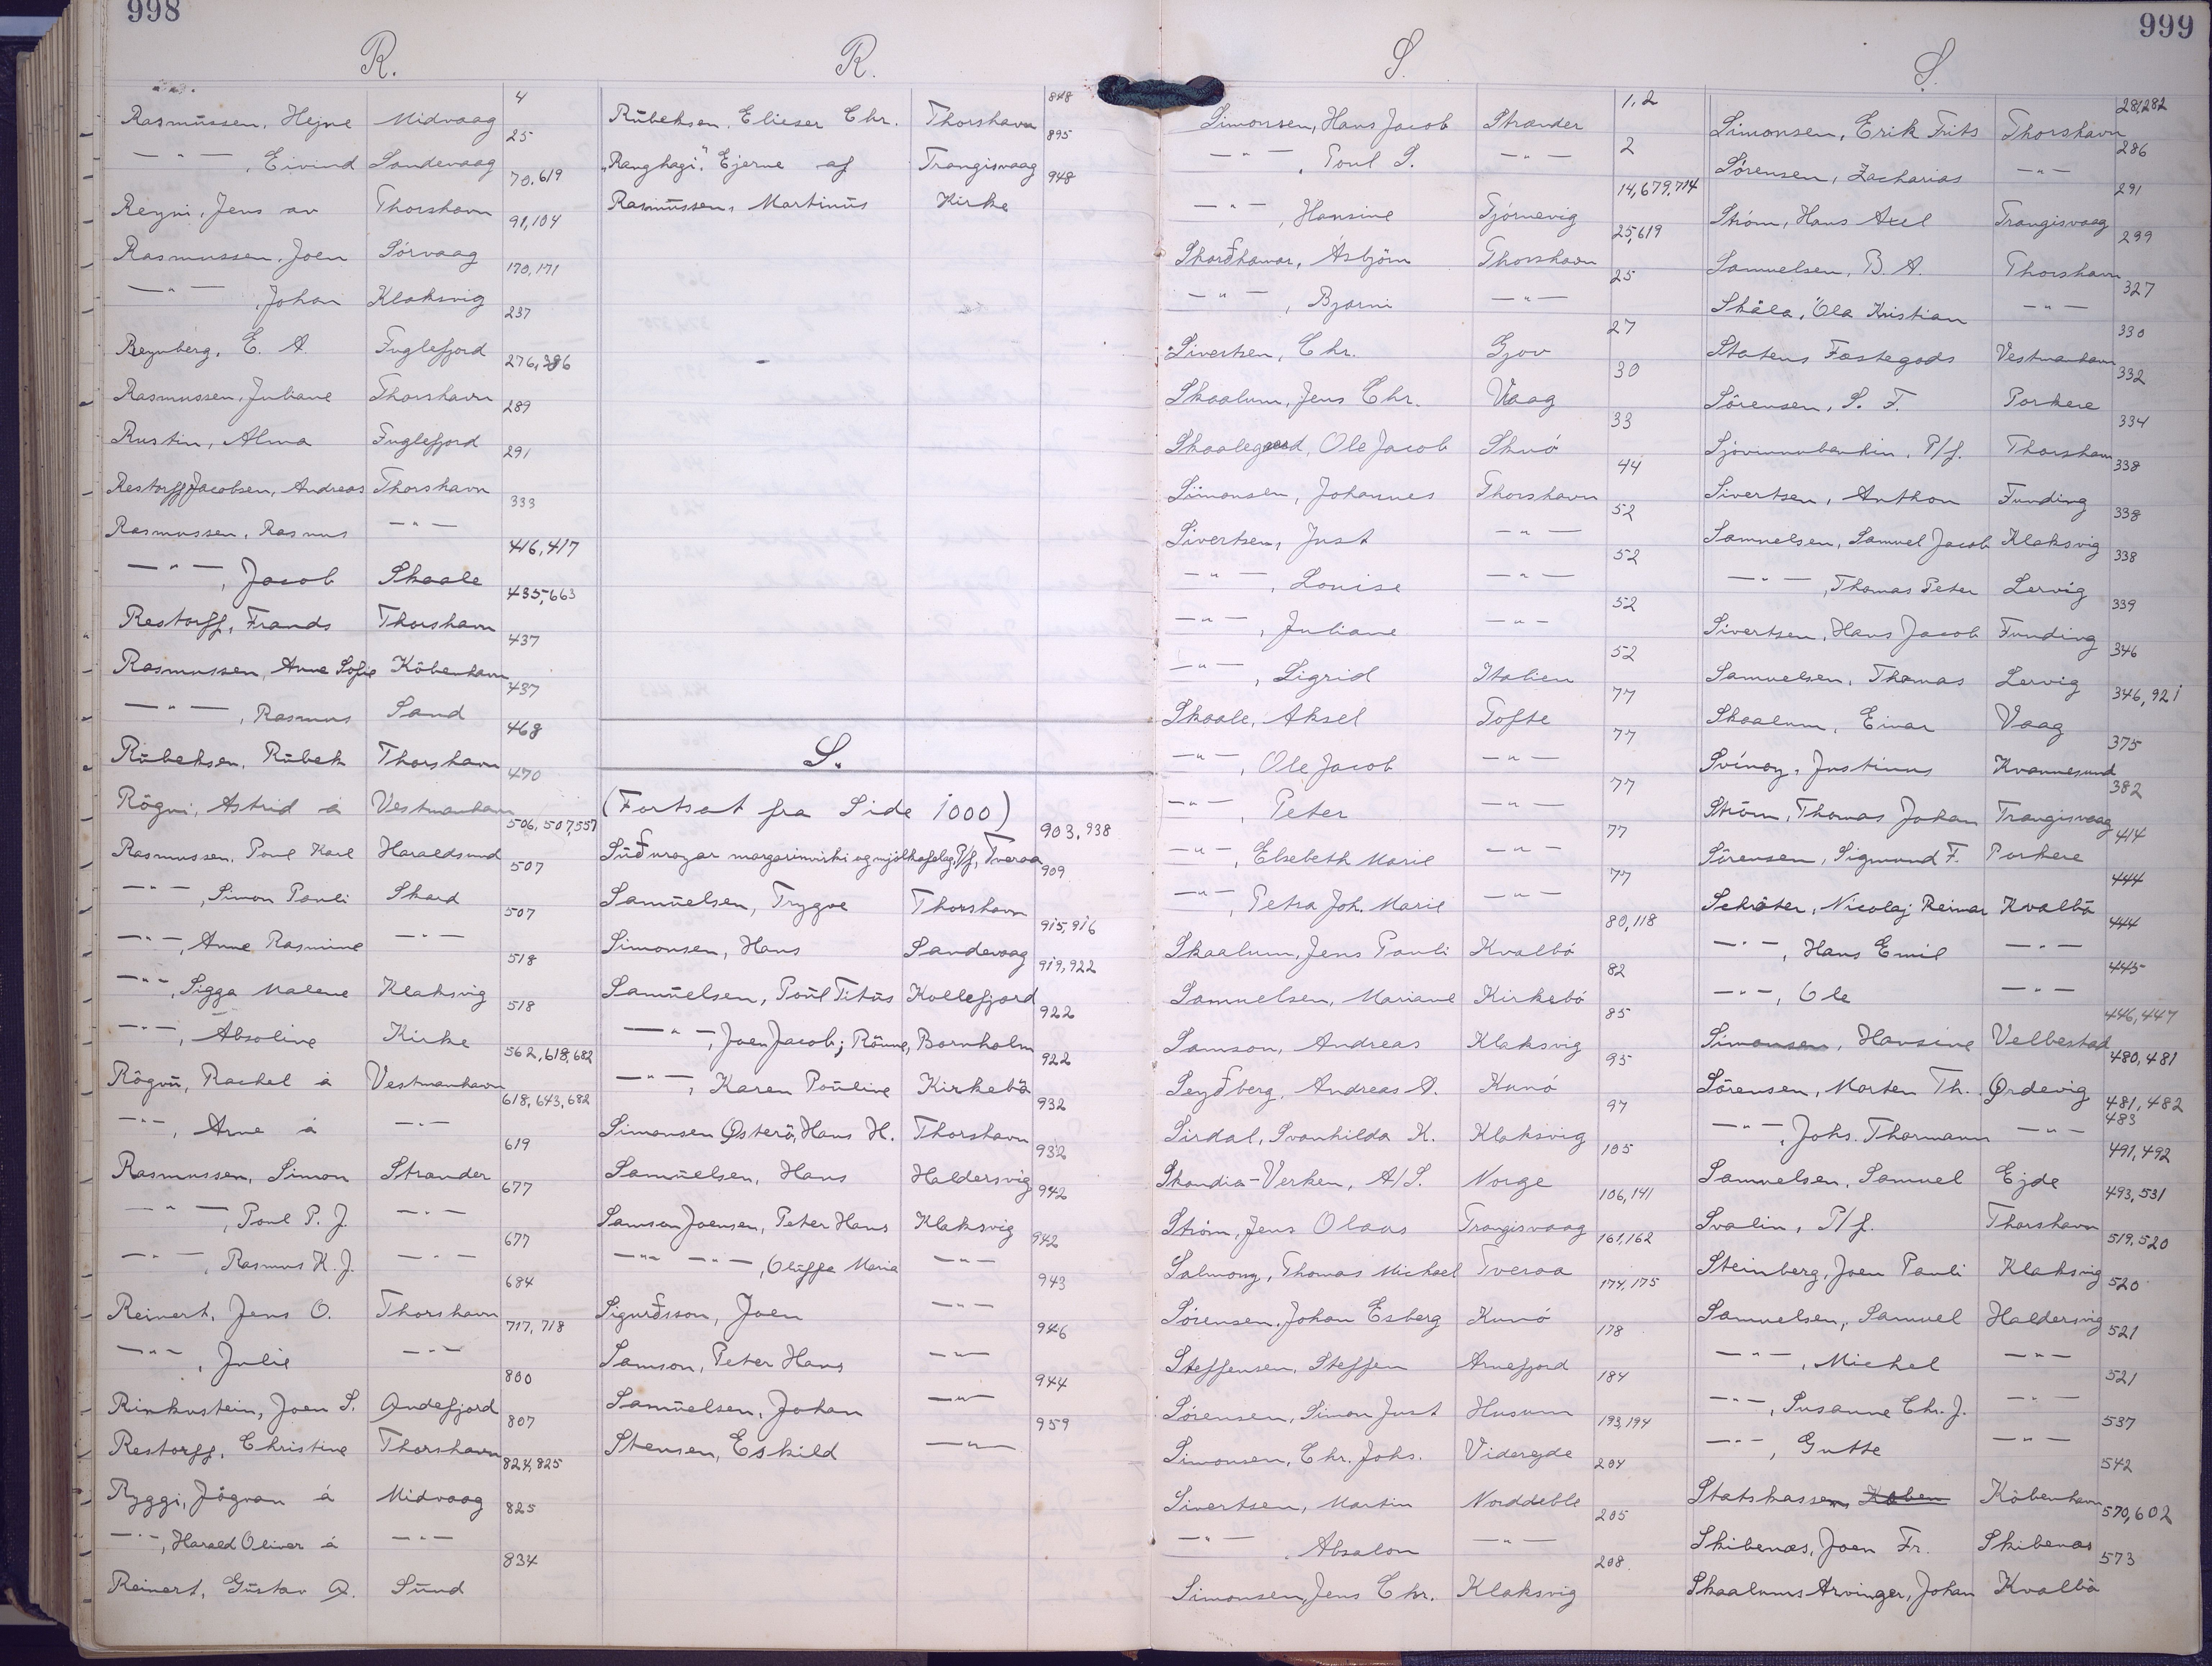 998
R.
4
Rasmussen, Hejne Midvaag
25
— " — , Eivind Sandevaag
70,619
Reyni, Jens av Thorshavn
91,104
Rasmussen, Joen Sörvaag
170,171
— " — , Johan Klaksvig
237
Reynberg, E. A. Fuglefjord
276,386
Rasmussen, Juliane Thorshavn
289
Rustin, Alma Fuglefjord
291
Restorff Jacobsen, Andreas Thorshavn
333
Rasmussen, Rasmus — " —
416,417
— " — , Jacob Skaale
435,663
Restorff, Frands Thorshavn
437
Rasmussen, Anne Sofie Köbenhavn
437
— " — , Rasmus Sand
468
Rübeksen, Rübek Thorshavn
470
Rögvi, Astrid á Vestmanhavn
506,507,557
Rasmussen, Poul Karl Haraldsund
507
— " — , Simon Pauli Skard
507
— " — , Anne Rasmine — " —
518
— " — , Sigga Malene Klaksvig
518
— " — , Absoline Kirke
562,618,682
Rögvü, Rachel á Vestmanhavn
618,643,682
— " — , Arne á — " —
619
Rasmussen, Simon Strander
677
— " — , Poul P. J. — " —
677
— " — , Rasmus K. J. — " —
684
Reinert, Jens O. Thorshavn
717,718
— " — , Julie — " —
800
Rinkustein, Joen S. Andefjord
807
Restorff, Christine Thorshavn
824,825
Ryggi, Jögvan á Midvaag
825
— " — , Harald Oliver á — " —
834
Reinert, Güstav A. Sünd
R.
848
Rübeksen, Elieser Chr. Thorshavn
895
"Ranghagi", Ejerne af Trangisvaag
948
Rasmüssen, Martinüs Kirke
S.
(Fortsat fra Side 1000)
903,938
Süðuroyar margarinvirki og mjólkafelag, P/f, Tveraa
909
Samüelsen, Trygve Thorshavn
915,916
Simonsen, Hans Sandevaag
919,922
Samüelsen, Poül Titüs Kollefjord
922
— " — , Joen Jacob; Rönne, Bornholm
922
— " — , Karen Pouline Kirkebö
932
Simonsen Østerö, Hans H. Thorshavn
932
Samüelsen, Hans Haldersvig
942
Samson Joensen, Peter Hans Klaksvig
942
— " — — " — , Olüffa Maria — " —
943
Sigurðsson, Joen — " —
946
Samson, Peter Hans — " —
944
Samüelsen, Johan — " —
959
Stensen, Eskild — " —
999
S.
1,2
Simonsen, Hans Jacob Strander
2
— " — , Poul S. — " —
14,679,714
— " — , Hansine Tjörnevig
25,619
Skarðhamar, Ásbjörn Thorshavn
25
— " — , Bjarni — " —
27
Sivertsen, Chr. Gjov
30
Skaalum, Jens Chr. Vaag
33
Skaalegaard, Ole Jacob Skuö
44
Simonsen, Johannes Thorshavn
52
Sivertsen, Just — " —
52
— " — , Louise — " —
52
— " — , Juliane — " —
52
— " — , Sigrid Italien
77
Skaale, Aksel Tofte
77
— " — , Ole Jacob — " —
77
— " — , Peter — " —
77
— " — , Elsebeth Marie — " —
77
— " — , Petra Joh. Marie — " —
80,118
Skaalum, Jens Pauli Kvalbö
82
Samuelsen, Mariane Kirkebö
85
Samson, Andreas Klaksvig
95
Seyðberg, Andreas A. Kunö
97
Sirdal, Svanhilda K. Klaksvig
105
Skandia-Verken, A/S. Norge
106,141
Ström, Jens Olaus Trangisvaag
161,162
Salmony, Thomas Michael Tveraa
174,175
Sörensen, Johan Esberg Kunö
178
Steffensen, Steffen Arnefjord
184
Sörensen, Simon Just Husum
193,194
Simonsen, Chr. Johs. Viderejde
204
Sivertsen, Martin Norddeble
205
— " — , Absalon — " —
208
Simonsen, Jens Chr. Klaksvig
S.
281,282
Simonsen, Erik Frits Thorshavn
286
Sörensen, Zacharias — " —
291
Ström, Hans Axel Trangisvaag
299
Samuelsen, B. A. Thorshavn
327
Skála, Óla Kristian — " —
330
Statens Fæstegods Vestmanhavn
332
Sörensen, S. F. Porkere
334
Sjóvinnubankin, P/f. Thorshavn
338
Sivertsen, Anthon Funding
338
Samuelsen, Samuel Jacob Klaksvig
338
— " — , Thomas Peter Lervig
339
Sivertsen, Hans Jacob Funding
346
Samuelsen, Thomas Lervig
346,921
Skaalum, Einar Vaag
375
Svínoy, Justinus Kvannesund
382
Ström, Thomas Johan Trangisvaag
414
Sörensen, Sigmund F. Porkere
444
Schröter, Nicolaj Reinar Kvalbö
444
— " — , Hans Emil — " —
445
— " — , Ole — " —
446,447
Simonsen, Hansine Velbestad
480,481
Sörensen, Morten Th. Ørdevig
481,482
483
— " — , Johs. Thormann — " —
491,492
Samuelsen, Samuel Ejde
493,531
Svalin, P/f. Thorshavn
519,520
Steinberg, Joen Pauli Klaksvig
520
Samuelsen, Samuel Haldersvig
521
— " — , Michel — " —
521
— " — , Susanne Chr. J. — " —
537
— " — , Gutte — " —
542
Statskassen Køben Köbenhavn
570,602
Skibenæs, Joen Fr. Skibenæs
573
Skaalums Arvinger, Johan Kvalbö